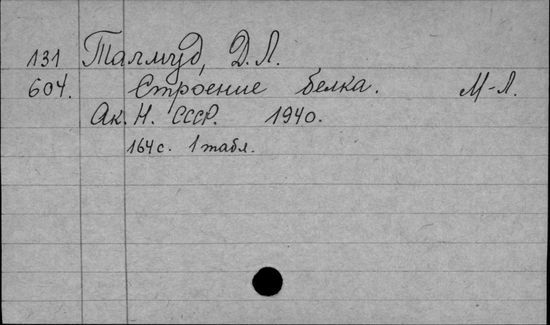 131 Талмуд, Д. Л.
604. Строение белка. М-Л.
Ак. Н. СССР. 1940.
164 с. 1 табл.